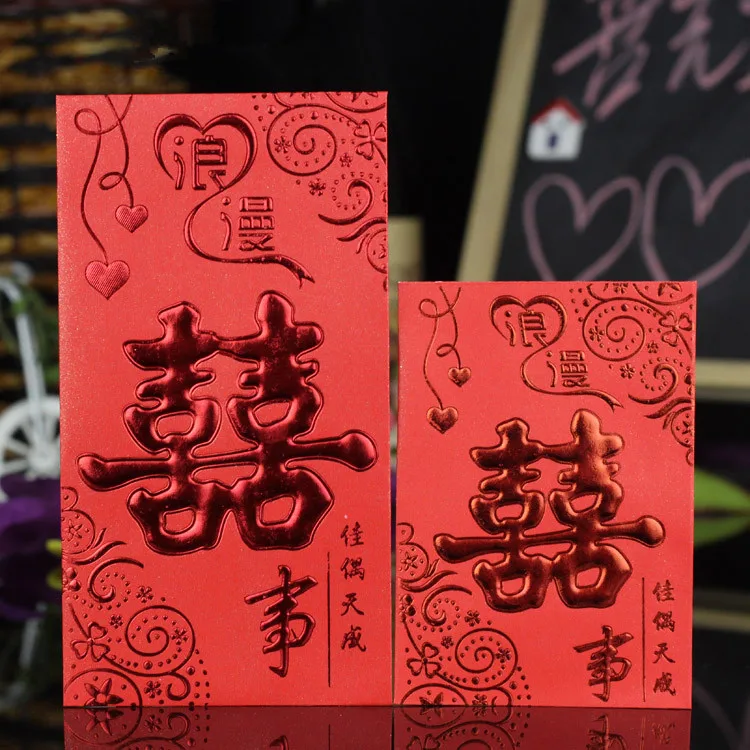 浪
漫
囍
事
佳偶天成
浪
漫
囍
事
佳偶天成
喜